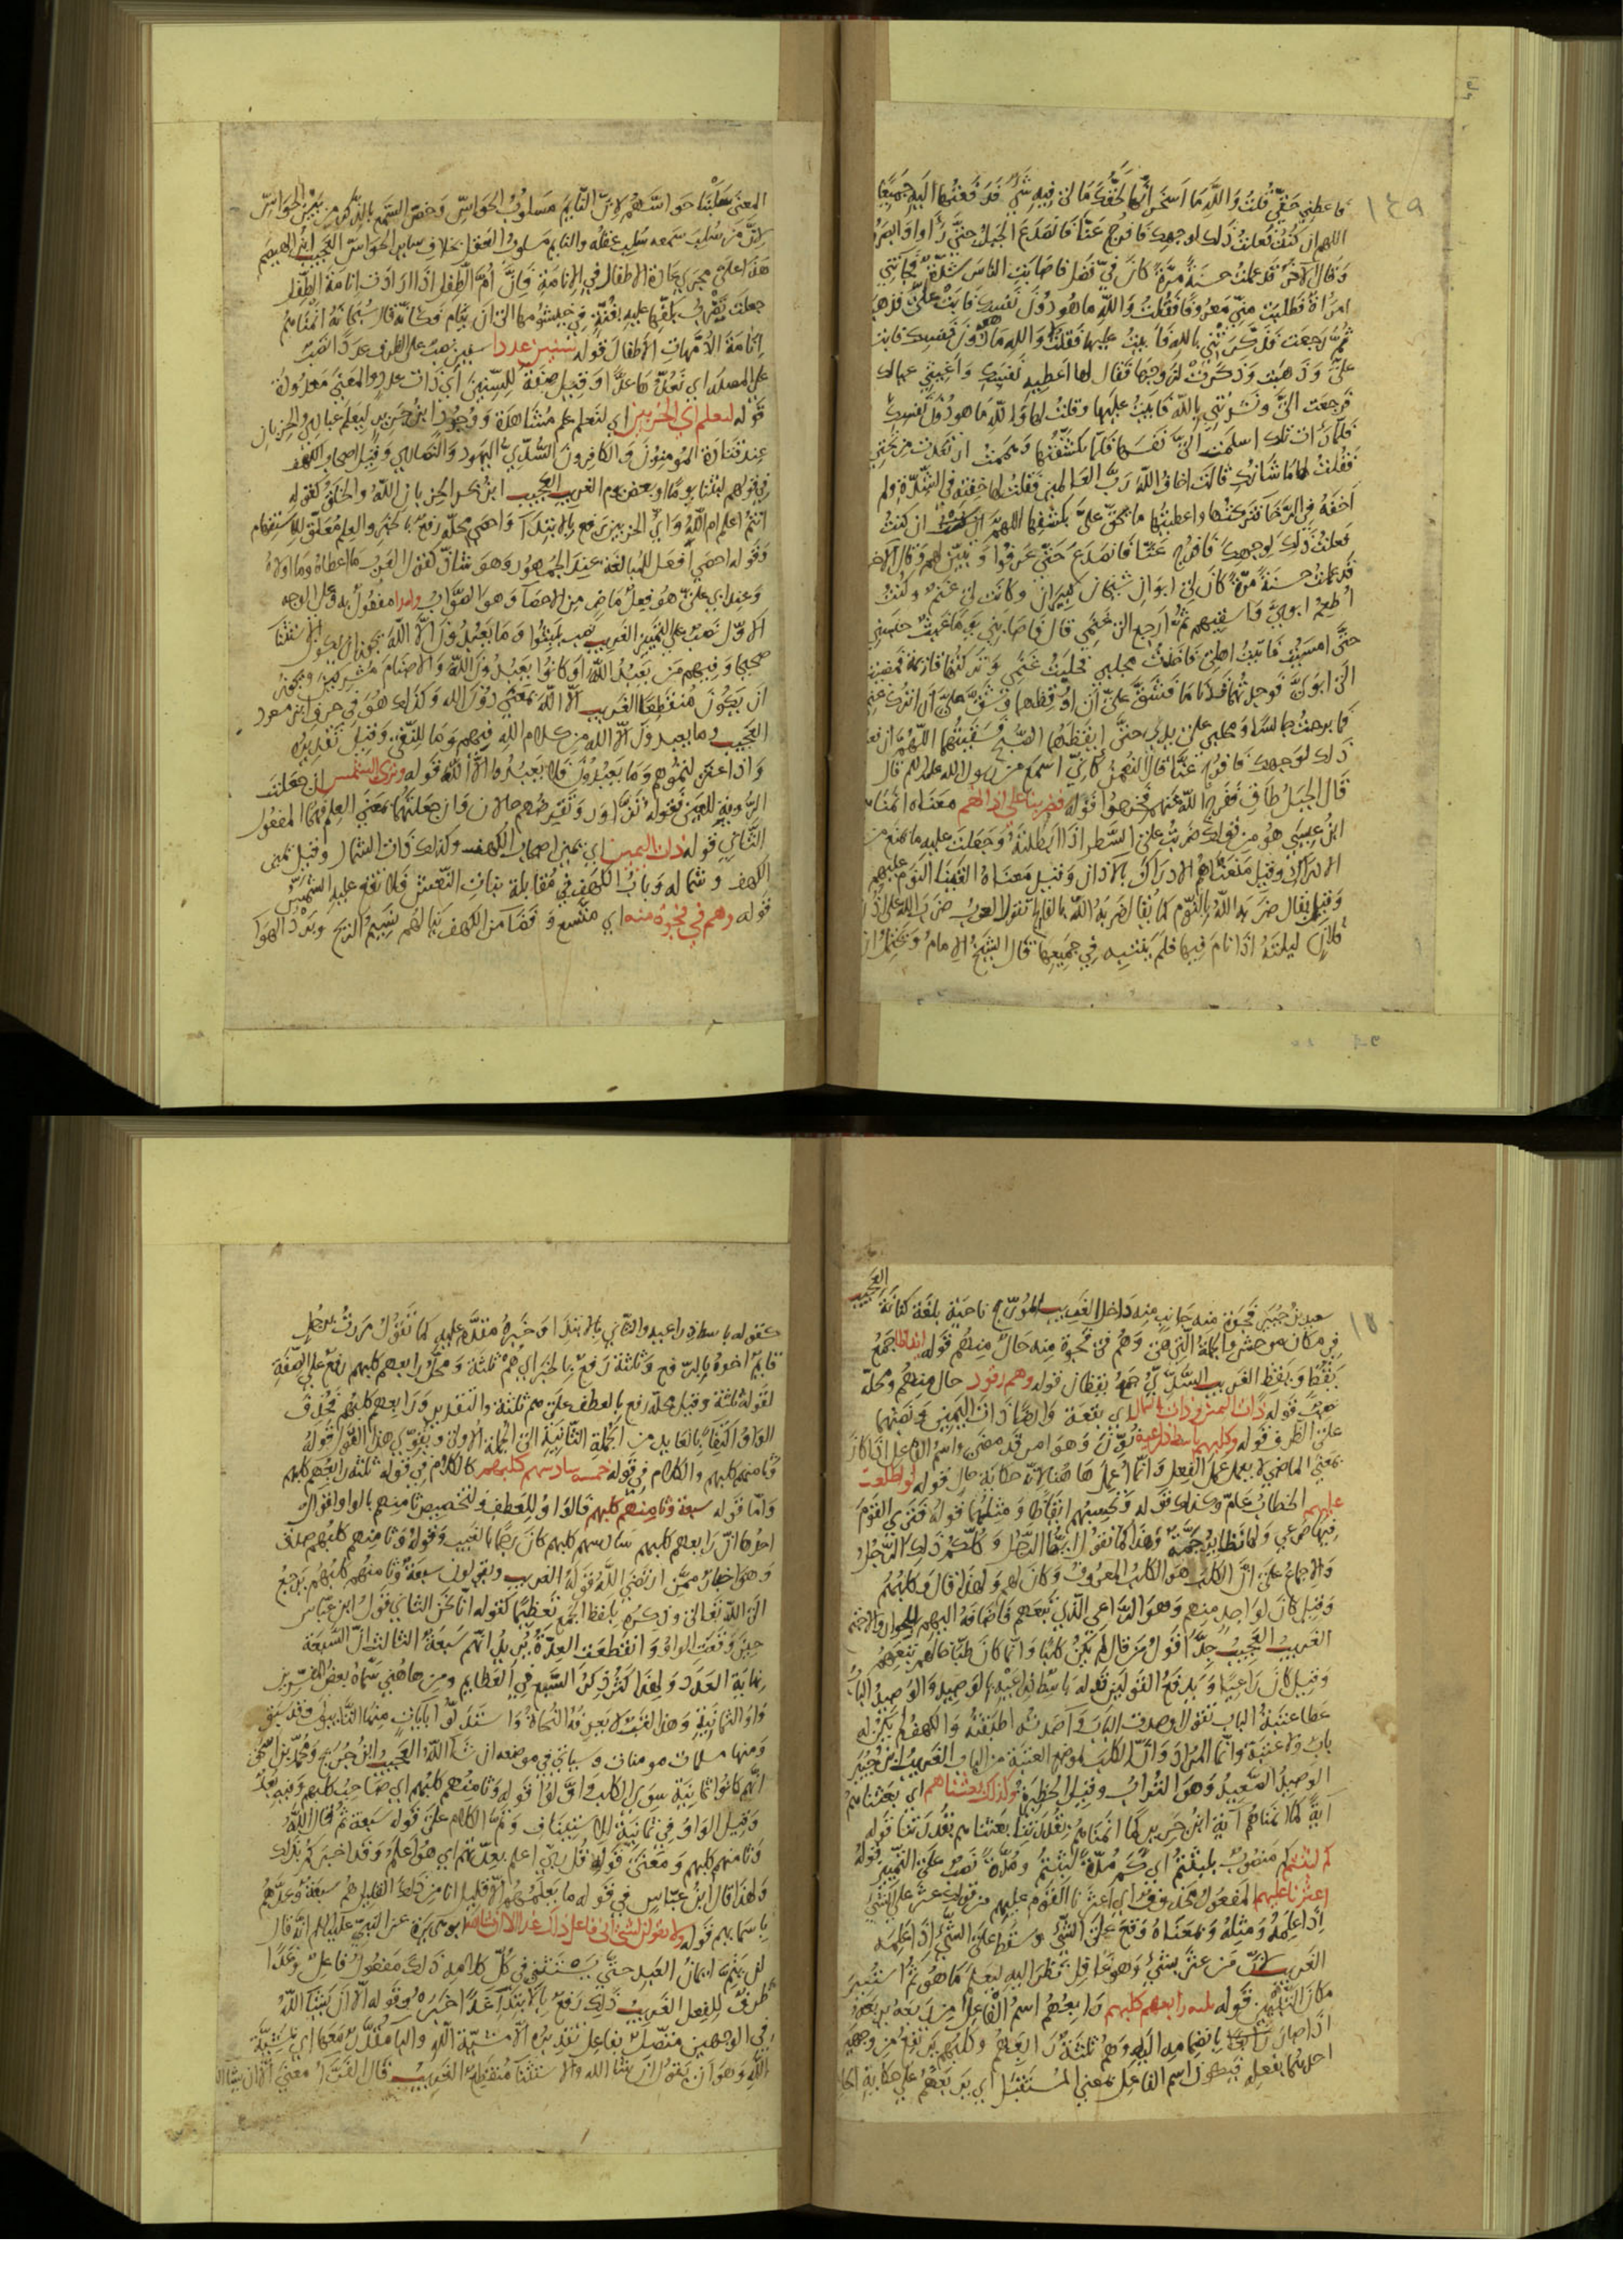 ١٤٩
فاعطني حقي قلت والله ما اسخر انها لحقك ما لي فيه شي فدفعتها اليه جميعا
اللهم ان كنت فعلت ذلك لوجهك فافرج عنا فانصدع الجبل حتى راوا وابصروا
وقال الآخر قد عملت حسنة مرة كان في فضل فاصابت الناس شدة فجاتني
امراة فطلبت مني معروفا فقلت والله ما هو دون نفسك فابت علي فذهبت
ثم رجعت فذكرتني بالله فابيت عليها فقلت والله ما هو دون نفسك فابت
علي وذهبت وذكرت لزوجها فقال لها اعطيه نفسك واغيثي عيالك
فرجعت الي ونشدتني بالله فابيت عليها وقلت لها والله ما هو دون نفسك
فلما رات ذلك اسلمت الي نفسها فلما تكشفتها وهممت ارتعدت من تحتي
فقلت لها ما شانك قالت اخاف الله رب العالمين فقلت لها خفته في الشدة ولم
اخفه في الرخا فتركتها واعطيتها ما يحق علي بكشفها اللهم ان كنت
فعلت ذلك لوجهك فافرج عنا فانصدع حتى عرفوا وتبين لهم وقال الآخر
قد عملت حسنة مرة كان لي ابوان شيخان كبيران وكانت لي غنم وكنت
اطعم ابوي واسقيهم ثم ارجع الى غنمي قال فاصابني يوما غيث حبسني
حتى امسيت فاتيت اهلي فاخذت محلبي فحلبت غنمي وتركتها قائمة فمضيت
الى ابوي فوجدتهما قد ناما فشق علي ان اوقظهما وشق علي ان اترك غنمي
فما برحت جالسا ومحلبي على يدي حتى ايقظهما الصبح فسقيتهما اللهم ان فعلت
ذلك لوجهك فافرج عنا قال النعمان كاني اسمع من رسول الله عليه السلم قال
قال الجبل طاق ففرج الله عنهم فخرجوا قوله فضربنا على اذانهم معناه انمناهم
ابن عيسى هو من قولك ضربت على السطر اذا ابطلته وجعلت عليه ما يمنع من
الادراك وقيل منعناهم الادراك بالاذان وقيل معناه القينا النوم عليهم
وقيل يقال ضربه الله بالنوم كما يقال ضربه الله بالفالج تقول العرب ضرب الله على اذن
فلان ليلته اذا نام فيها فلم ينتبه في جميعها قال الشيخ الامام ويحتمل ان
المعنى سلبنا حواسهم لان النايم مسلوب الحواس وخص السمع بالذكر من بين الحواس
لان من سلب سمعه سلب عقله والنايم مسلوب العقل بخلاف ساير الحواس العجيب ابن الهيصم
هذا على مجرى عادة الاطفال في الانامة فان ام الطفل اذا ارادت انامة الطفل
جعلت تضرب بكفها عليه في خيشومها الى ان ينام فكانه قال سبحانه انمناهم
انامة الامهات الاطفال قوله سنين عددا سنين نصب على الظرف عددا نصب
على المصدر اي نعد عدا وقيل صفة للسنين اي ذات عدد والمعنى معدودة
قوله لنعلم اي الحزبين اي لنعلم علم مشاهدة ووجود ابن جرير ليعلم عبادي والحزبان
عند قتادة المومنون والكافرون السدي اليهود والنصارى وقيل اصحاب الكهف
في قولهم لبثنا يوما او بعض يوم الغريب العجيب ابن بحر الحزبان الله والخلق كقوله
اانتم اعلم ام الله واي الحزبين رفع بالابتدا واحصى محله رفع بالخبر والعلم معلق للاستفهام
وقوله احصى افعل للمبالغة عند الجمهور وهو شاذ كقول العرب ما اعطاه وما اولاه
وعند ابي علي هو فعل ماض من الاحصا وهو الصواب وامدا مفعول به وعلى الوجه
الاول نصب على التمييز الغريب نصب بلبثوا وما يعبدون الا الله يجوز ان يكون الاستثنا
صحيحا وفيهم من يعبد الله او كانوا يعبدون الله والاصنام مشركين ويجوز
ان يكون منقطعا الغريب الا الله بمعنى دون الله وكذلك هو في حرف ابن مسعود
العجيب وما يعبدون الا الله من كلام الله فيهم وما للنفي وقيل تقديره
واذ اعتزلتموهم وما يعبدون فلا تعبدوا الا الله قوله وترى الشمس ان جعلت
الروية للعين فقوله تزاور وتقرضهم حالان وان جعلتها بمعنى العلم فهما المفعول
الثاني قوله ذات اليمين اي يمين اصحاب الكهف وكذلك ذات الشمال وقيل يمين
الكهف وشماله وباب الكهف في مقابلة بنات النعش فلا تقع عليه الشمس
قوله وهم في فجوة منه اي متسع وفضا من الكهف ينالهم نسيم الريح وبرد الهوا
١٥٠
سعيد بن جبير فجوة منه جانب منه داخل الغريب المورج ناحية بلغة كنانة العجيب
في مكان موحش والجملة التي هي وهم في فجوة منه حال منهم قوله ايقاظا جمع
يقظ ويقظ الغريب السدي جمع يقظان قوله وهم رقود حال منهم ومحله
نصب قوله ذات اليمين وذات الشمال اي بقعة وارضا ذات اليمين ونصبهما
على الظرف قوله وكلبهم باسط ذراعيه نون وهو امر قد مضى واسم الفاعل اذا كان
بمعنى الماضي لا يعمل عمل الفعل وانما اعمل هاهنا لانه حكاية حال قوله لو اطلعت
عليهم الخطاب عام وكذلك قوله وتحسبهم ايقاظا ومثلهما قوله فترى القوم
فيها صرعى ولها نظاير جمة وهذا كما تقول ايها الرجل وكلكم ذلك الرجل
والاجماع على ان الكلب هو الكلب المعروف وكان لهم ولهذا قال وكلبهم
وقيل كان لواحد منهم وهو الراعي الذي تبعهم فاضافه اليهم للجوار والاجتماع
الغريب العجيب جدا قول من قال لم يكن كلبا وانما كان طباخا لهم تبعهم
وقيل كان راعيا ويدفع القولين قوله باسط ذراعيه بالوصيد والوصيد الباب
عطا عتبة الباب تقول اوصدت الباب واصدته اطبقته والكهف لم يكن له
باب ولا عتبة وانما المراد وان الكلب موضع العتبة من الباب الغريب ابن جبير
الوصيد الصعيد وهو التراب وقيل الحظيرة وكذلك بعثناهم اي بعثناهم
اية كما انمناهم اية ابن جرير كما انمناهم بقدرتنا بعثناهم بقدرتنا قوله
كم لبثتم كم منصوب بلبثتم اي كم مدة لبثتم ومدة نصب على التمييز قوله
اعثرنا عليهم المفعول محذوف اي اعثرنا القوم عليهم من قولك عثر على الشي
اذا علمه ومثله ومعناه وقع على الشي وسقط على الشي اذا علمه
الغريب من عثر بشي وهو غافل نظر اليه ليعلم ما هو ثم استعير
مكان التبيين قوله ثلثة رابعهم كلبهم رابعهم اسم الفاعل من ربعه يربعه
اذا صار رابعا بانضمامه اليه وهم ثلثة رابعهم وكلبهم يرتفع من وجهين
احدهما بفعله فيكون اسم الفاعل بمعنى المستقبل اي يربعهم على حكاية الحال
كقوله باسط ذراعيه والثاني بالابتدا وخبره مقدم عليه كما تقول مررت برجل
قايم اخوه بالرفع وثلثة رفع بالخبر اي هم ثلثة ومحل رابعهم كلبهم رفع على الصفة
لقوله ثلثة وقيل محله رفع بالعطف على هم ثلثة والتقدير ورابعهم كلبهم فحذف
الواو اكتفا بالعايد من الجملة الثانية الى الجملة الاولى ويقوي هذا القول قوله
وثامنهم كلبهم والكلام في قوله خمسة سادسهم كلبهم كالكلام في قوله ثلثة رابعهم كلبهم
واما قوله سبعة وثامنهم كلبهم قالوا للعطف ولتخصيص ثامنهم بالواو اقوال
احدها ان رابعهم كلبهم سادسهم كلبهم كان رجما بالغيب وقوله وثامنهم كلبهم صدق
وهو اخبار ممن ارتضى الله قوله الغريب ويقولون سبعة وثامنهم كلبهم يرجع
الى الله تعالى وذكره بلفظ الجمع تعظيما كقوله انا نحن الثاني قول ابن عباس
حين وقعت الواو وانقطعت العدة يريد انهم سبعة الثالث ان السبعة
نهاية العدد ولهذا كثر ذكر السبع في العظايم ومن هاهنا سماه بعض المفسرين
واو الثمانية وهذا لقب لا يعرفه النحاة واستدلوا بايات منها التايبون وقد سبق
ومنها مسلمات مومنات وسياتي في موضعه ان شا الله العجيب ابن جريج ومحمد بن اسحق
انهم كانوا ثمانية سوى الكلب واولوا قوله وثامنهم كلبهم اي صاحب كلبهم وفيه بعد
وقيل الواو في ثمانية للاستيناف وتم الكلام على قوله سبعة ثم قال الله
وثامنهم كلبهم ومعنى قوله قل ربي اعلم بعدتهم اي هو اعلم وقد اخبركم بذلك
ولهذا قال ابن عباس في قوله ما يعلمهم الا قليل انا من ذلك القليل هم سبعة وعدهم
باسمايهم قوله ولا تقولن لشي اني فاعل ذلك غدا الا ان يشا الله ابو هريرة عن النبي عليه السلم انه قال
لن يتم ايمان العبد حتى يستثني في كل كلامه ذلك مفعول فاعل وغدا
ظرف للفعل الغريب ذلك رفع بالابتدا غدا خبره وقوله الا ان يشا الله
في الوجهين متصل بفاعل تقديره الا بمشية الله والبا مقدر معها اي بمشية
الله وهو ان يقول ان شا الله والاستثنا منقطع الغريب قال الفرا معنى الا ان يشا الله